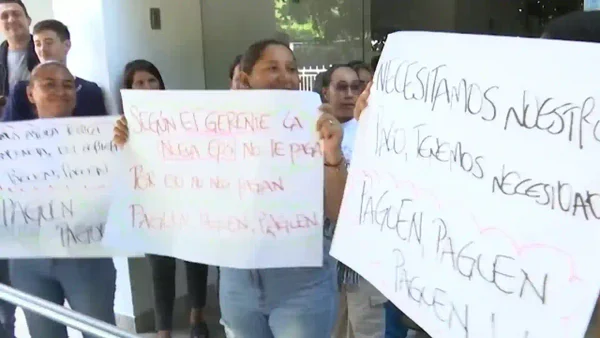 PAGUEN
SEGÚN El GERENTE LA
NUEVA EPS NO LE PAGA
POR ESO NO NOS PAGAN
PAGUEN, PAGUEN, PAGUEN
NECESITAMOS NUESTRO
PAGO, TENEMOS NECESIDAD
PAGUEN, PAGUEN
PAGUEN